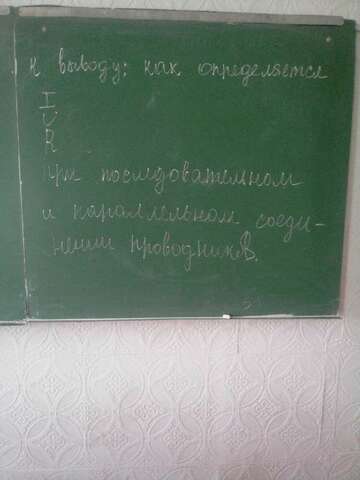 к выводу: как определяется
I
U
R
при последовательном
и параллельном соеди-
нении проводников.